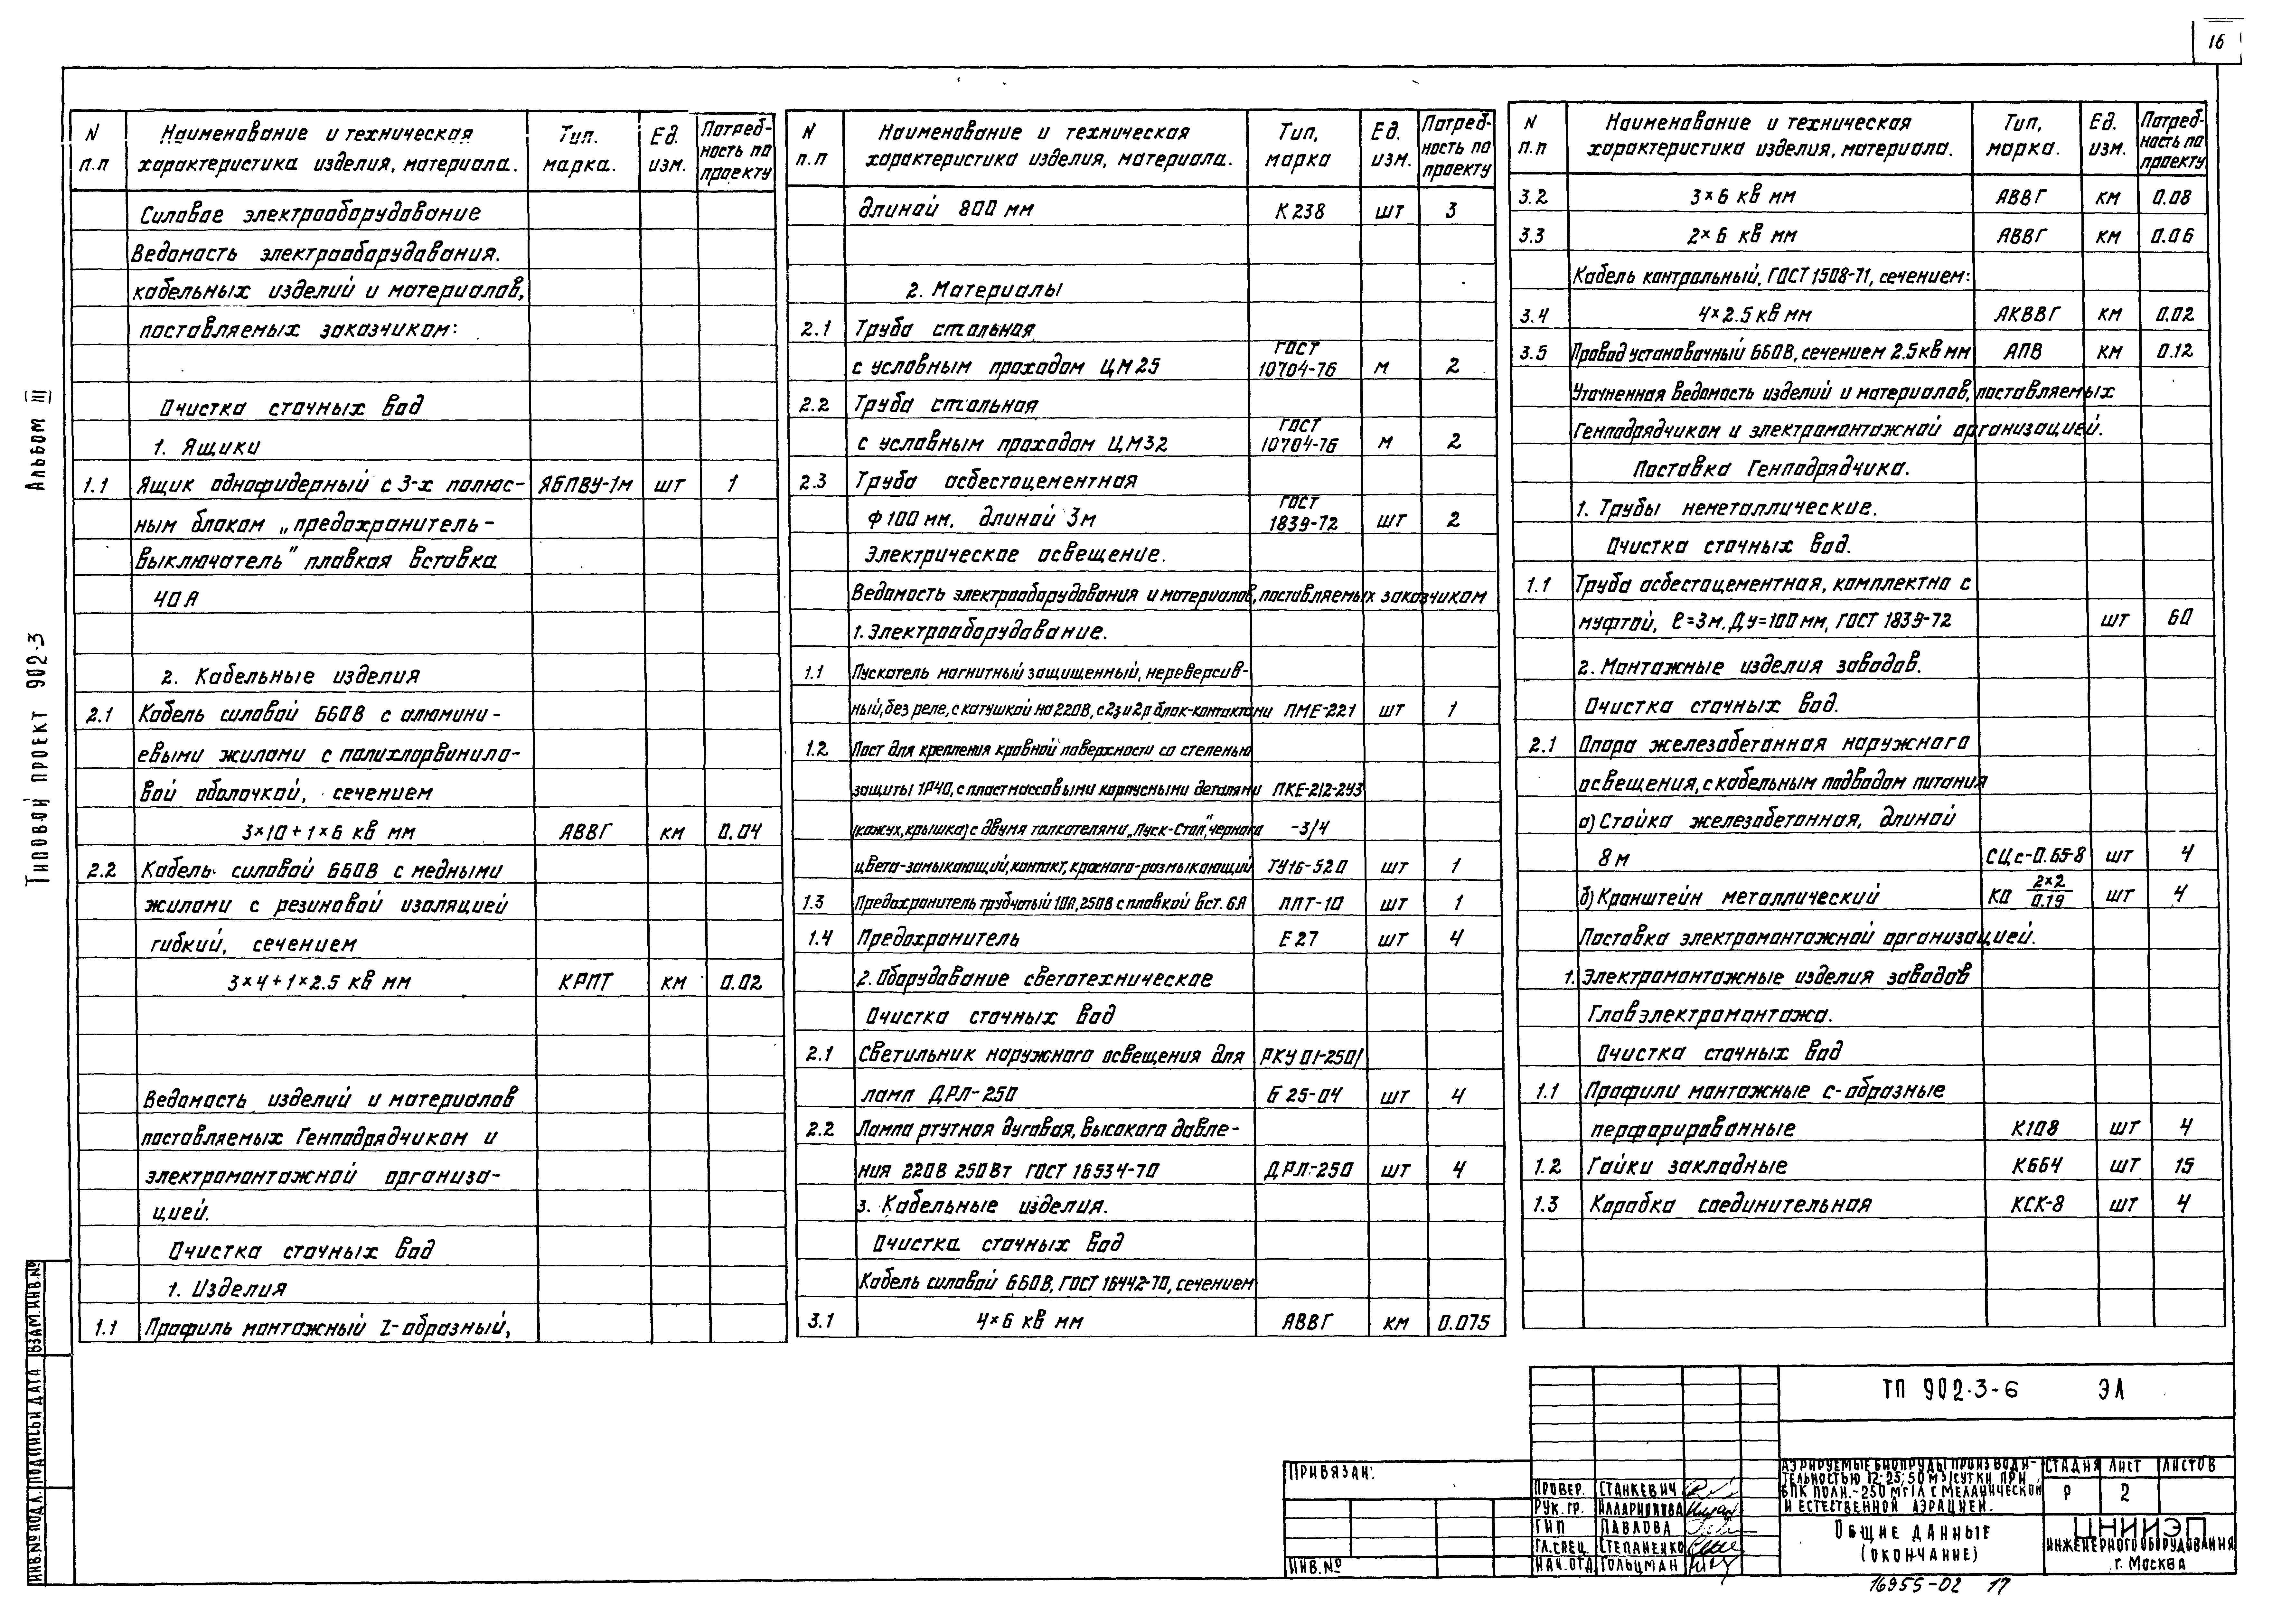 16
Альбом III
Типовой проект 902-3
N п.п | Наименование и техническая характеристика изделия, материала. | Тип. марка. | Ед. изм. | Потреб-ность по проекту
Силовое электрооборудование
Ведомость электрооборудования.
кабельных изделий и материалов,
поставляемых заказчиком:
Очистка сточных вод
1. Ящики
1.1 Ящик однофидерный с 3-х полюс- ЯБПВУ-1м шт 1
ным блоком „предохранитель-
выключатель" плавкая вставка
40А
2. Кабельные изделия
2.1 Кабель силовой 660В с алюмини-
евыми жилами с полихлорвинило-
вой оболочкой, сечением
3×10+1×6 кв мм АВВГ км 0.04
2.2 Кабель силовой 660В с медными
жилами с резиновой изоляцией
гибкий, сечением
3×4+1×2.5 кв мм КРПТ км 0.02
Ведомость изделий и материалов
поставляемых Генподрядчиком и
электромонтажной организа-
цией.
Очистка сточных вод
1. Изделия
1.1 Профиль монтажный Z-образный,
N п.п | Наименование и техническая характеристика изделия, материала. | Тип, марка | Ед. изм. | Потреб-ность по проекту
длиной 800 мм К238 шт 3
2. Материалы
2.1 Труба стальная
с условным проходом ЦМ25 ГОСТ 10704-76 м 2
2.2 Труба стальная
с условным проходом ЦМ32 ГОСТ 10704-76 м 2
2.3 Труба асбестоцементная
Ф100 мм, длиной 3м ГОСТ 1839-72 шт 2
Электрическое освещение.
Ведомость электрооборудования и материалов, поставляемых заказчиком
1. Электрооборудование.
1.1 Пускатель магнитный защищенный, нереверсив-
ный, без реле, с катушкой на 220В, с 2з и 2р блок-контактами ПМЕ-221 шт 1
1.2 Пост для крепления к ровной поверхности со степенью
защиты 1Р40, с пластмассовыми корпусными деталями ПКЕ-212-2У3
(кожух, крышка) с двумя толкателями „Пуск-Стоп", черного -3/4
цвета-замыкающий, контакт, красного-размыкающий ТУ16-520 шт 1
1.3 Предохранитель трубчатый 10А, 250В с плавкой вст. 6А ППТ-10 шт 1
1.4 Предохранитель Е27 шт 4
2. Оборудование светотехническое
Очистка сточных вод
2.1 Светильник наружного освещения для РКУ 01-250/
ламп ДРЛ-250 Б 25-04 шт 4
2.2 Лампа ртутная дуговая, высокого давле-
ния 220В 250Вт ГОСТ 16534-70 ДРЛ-250 шт 4
3. Кабельные изделия.
Очистка сточных вод
Кабель силовой 660В, ГОСТ 16442-70, сечением
3.1 4×6 кв мм АВВГ км 0.075
N п.п | Наименование и техническая характеристика изделия, материала. | Тип, марка. | Ед. изм. | Потреб-ность по проекту
3.2 3×6 кв мм АВВГ км 0.08
3.3 2×6 кв мм АВВГ км 0.06
Кабель контрольный, ГОСТ 1508-71, сечением:
3.4 4×2.5 кв мм АКВВГ км 0.02
3.5 Провод установочный 660В, сечением 2.5 кв мм АПВ км 0.12
Уточненная ведомость изделий и материалов, поставляемых
Генподрядчиком и электромонтажной организацией.
Поставка Генподрядчика.
1. Трубы неметаллические.
Очистка сточных вод.
1.1 Труба асбестоцементная, комплектно с
муфтой, ℓ=3м, Ду=100 мм, ГОСТ 1839-72 шт 60
2. Монтажные изделия заводов.
Очистка сточных вод.
2.1 Опора железобетонная наружного
освещения, с кабельным подводом питания
а) Стойка железобетонная, длиной
8м СЦс-0.65-8 шт 4
б) Кронштейн металлический КО 2×2/0.19 шт 4
Поставка электромонтажной организацией.
1. Электромонтажные изделия заводов
Главэлектромонтажа.
Очистка сточных вод
1.1 Профили монтажные с-образные
перфорированные К108 шт 4
1.2 Гайки закладные К664 шт 15
1.3 Коробка соединительная КСК-8 шт 4
ИНВ.№ ПОДЛ. ПОДПИСЬ И ДАТА ВЗАМ.ИНВ.№
Привязан:
ИНВ.№
ПРОВЕР. СТАНКЕВИЧ
РУК.ГР. ИЛЛАРИОНОВА
ГИП ПАВЛОВА
ГЛ.СПЕЦ. СТЕПАНЕНКО
НАЧ.ОТД. ГОЛЬЦМАН
ТП 902-3-6 ЭЛ
АЭРИРУЕМЫЕ БИОПРУДЫ ПРОИЗВОДИ-
ТЕЛЬНОСТЬЮ 12; 25; 50 М3/СУТКИ ПРИ
БПК ПОЛН.-250 МГ/Л С МЕХАНИЧЕСКОЙ
И ЕСТЕСТВЕННОЙ АЭРАЦИЕЙ.
СТАДИЯ ЛИСТ ЛИСТОВ
Р 2
Общие данные
(окончание)
ЦНИИЭП
ИНЖЕНЕРНОГО ОБОРУДОВАНИЯ
г. Москва
16955-02 17